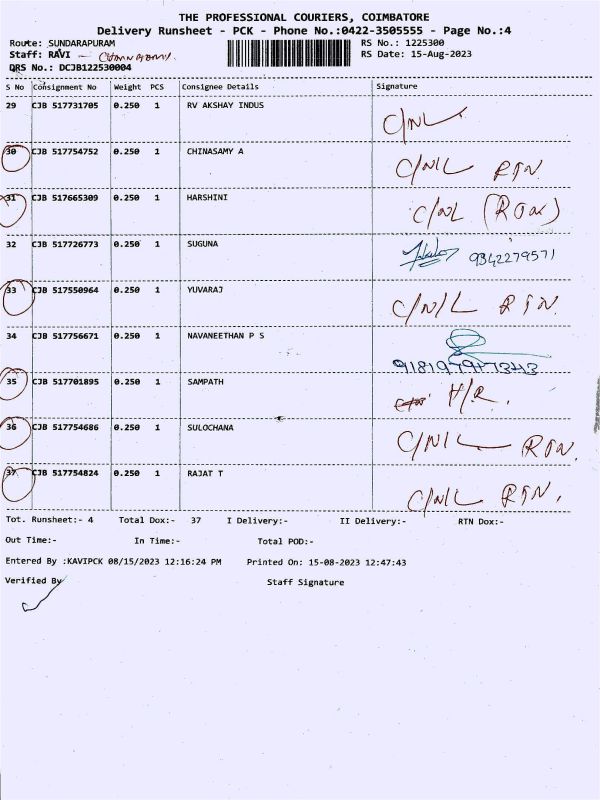 THE PROFESSIONAL COURIERS, COIMBATORE
Delivery Runsheet - PCK - Phone No.:0422-3505555 - Page No.:4
Route: SUNDARAPURAM RS No.: 1225300
Staff: RAVI - RS Date: 15-Aug-2023
DRS No.: DCJB122530004
S No Consignment No Weight PCS Consignee Details Signature
29 CJB 517731705 0.250 1 RV AKSHAY INDUS C/NL
30 CJB 517754752 0.250 1 CHINASAMY A C/N/L RTN.
31 CJB 517665309 0.250 1 HARSHINI C/NL (RTN)
32 CJB 517726773 0.250 1 SUGUNA 9342279571
33 CJB 517550964 0.250 1 YUVARAJ C/N/L RTN.
34 CJB 517756671 0.250 1 NAVANEETHAN P S
35 CJB 517701895 0.250 1 SAMPATH H/R.
36 CJB 517754686 0.250 1 SULOCHANA C/N/L RTN.
37 CJB 517754824 0.250 1 RAJAT T C/N/L RTN.
Tot. Runsheet:- 4 Total Dox:- 37 I Delivery:- II Delivery:- RTN Dox:-
Out Time:- In Time:- Total POD:-
Entered By :KAVIPCK 08/15/2023 12:16:24 PM Printed On: 15-08-2023 12:47:43
Verified By Staff Signature